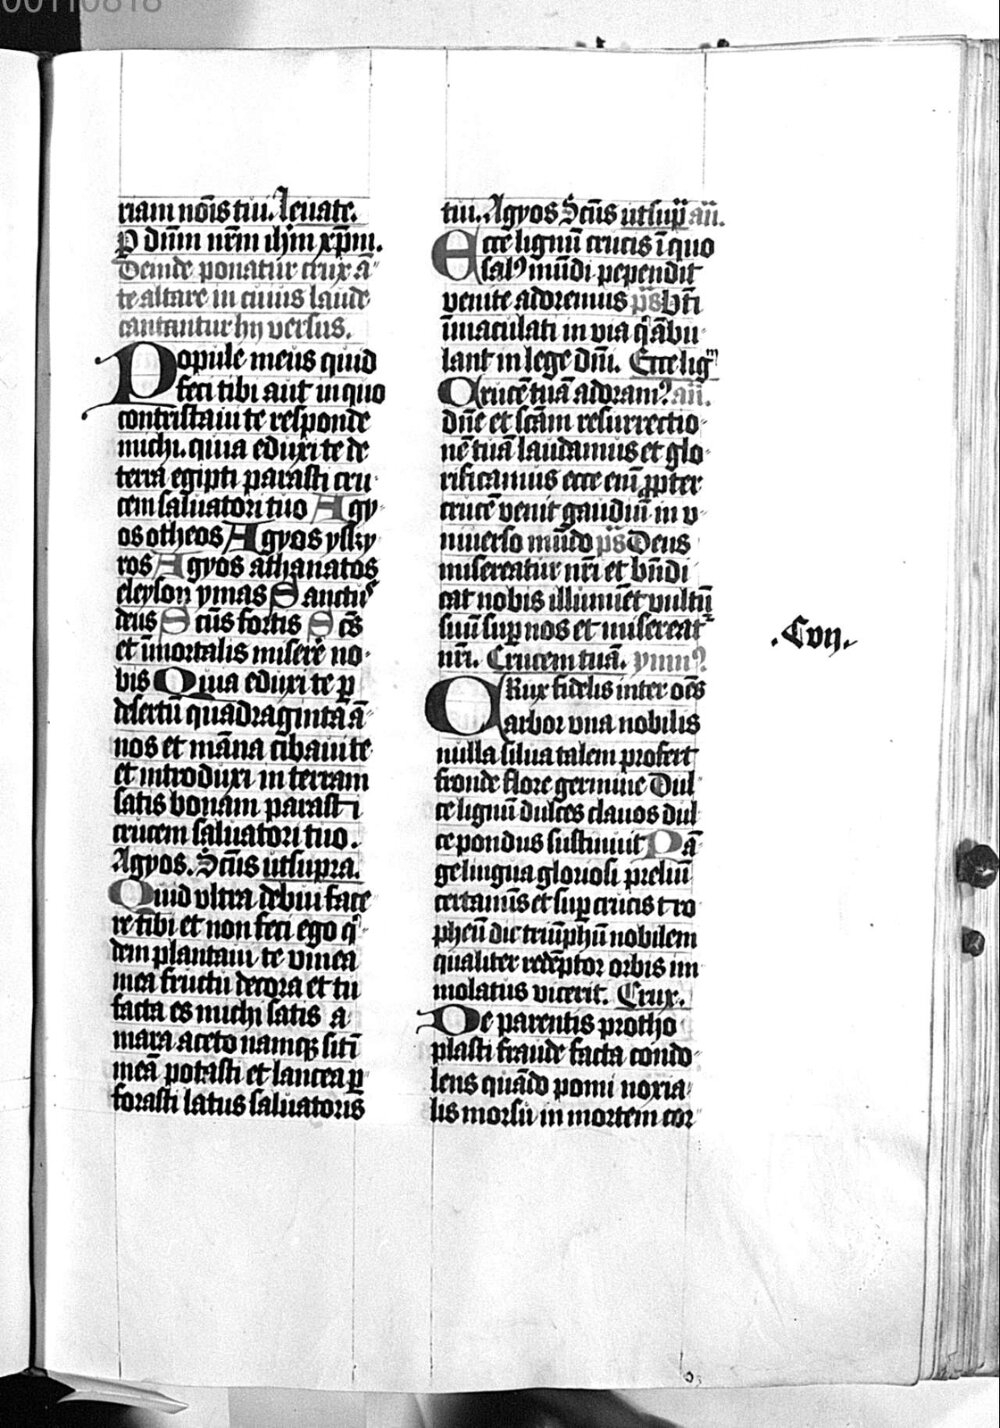 00110818
riam nōis tui. Leuate.
P dn̄m nr̄m ih̄m xp̄m.
Deinde ponatur crux ā
te altare in cuius laude
cantantur hy versus.
Popule meus quid
feci tibi aut in quo
contristaui te responde
michi. quia eduxi te de
terra egipti parasti cru
cem saluatori tuo Agy
os otheos Agyos yskÿ
ros Agyos athanatos
eleyson ymas Sanctus
deus Sc̄us fortis Sc̄s
et īmortalis miserē no
bis Quia eduxi te ꝑ
desertū quadraginta ā
nos et māna cibaui te
et introduxi in terram
satis bonam parasti
crucem saluatori tuo.
Agyos. Sc̄us ut supra.
Quid vltra debui face
re tibi et non feci ego q̇
dem plantaui te vinea
mea fructu decora et tu
facta es michi satis a
mara aceto namqꝫ sitī
meā potasti et lancea ꝑ
forasti latus saluatoris
tui. Agyos Sc̄us ut sup̄ añ.
Ecce lignū crucis ī quo
salꝰ mūdi pependit
venite adoremus p̄s Bt̄i
īmaculati in via q̇ ābu
lant in lege dn̄i. Ecce lig̅
Crucē tuā adoramꝰ añ.
dn̄e et sc̄am resurrectio
nē tuā laudamus et glo
rificamus ecce enī ꝓpter
crucē venit gaudiū in v
niuerso mūdo p̄s Deus
misereatur nr̄i et bn̄di
cat nobis illuminet vultū
suū suꝑ nos et misereat᷑
nr̄i. Crucem tuā. ymnꝰ
CRux fidelis inter oēs
arbor vna nobilis
nulla silua talem profert
fronde flore germine Dul
ce lignū dulces clauos dul
ce pondus sustinuit Pā
ge lingua gloriosi prelii
certamīs et suꝑ crucis tro
pheū dic triūphū nobilem
qualiter redēptor orbis im
molatus vicerit. Crux.
De parentis protho
plasti fraude facta condo
lens quādo pomi noxia
lis morsu in mortem cor
.Cvij.